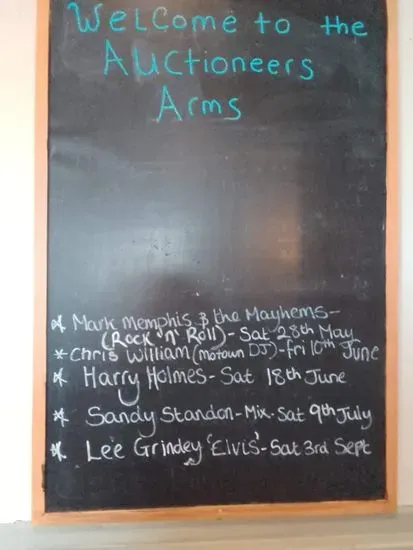 Welcome to the
Auctioneers
Arms
* Mark Memphis & the Mayhems-
(Rock 'n' Roll) - Sat 28th May
* Chris William (motown DJ) - Fri 10th June
* Harry Holmes - Sat 18th June
* Sandy Standon - Mix. Sat 9th July
* Lee Grindey 'Elvis' - Sat 3rd Sept